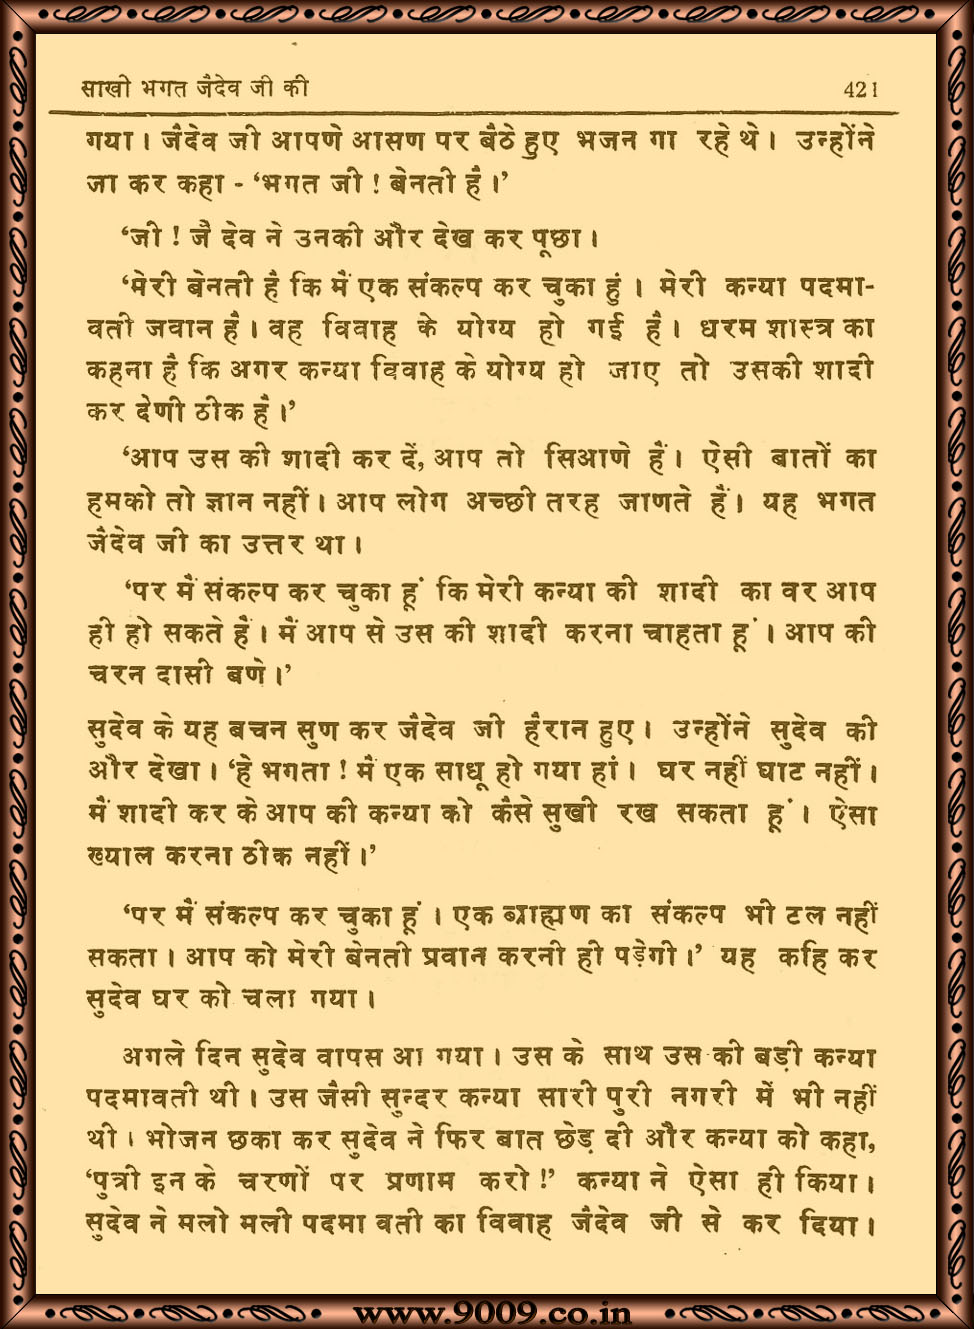 साखी भगत जैदेव जी की 421
गया। जैदेव जी आपणे आसण पर बैठे हुए भजन गा रहे थे। उन्होंने
जा कर कहा - ‘भगत जी ! बेनती है।’
‘जी ! जै देव ने उनकी और देख कर पूछा।
‘मेरी बेनती है कि मैं एक संकल्प कर चुका हुं। मेरी कन्या पदमा-
वती जवान है। वह विवाह के योग्य हो गई है। धरम शास्त्र का
कहना है कि अगर कन्या विवाह के योग्य हो जाए तो उसकी शादी
कर देणी ठीक है।’
‘आप उस की शादी कर दें, आप तो सिआणे हैं। ऐसी बातों का
हमको तो ज्ञान नहीं। आप लोग अच्छी तरह जाणते हैं। यह भगत
जैदेव जी का उत्तर था।
‘पर मैं संकल्प कर चुका हूं कि मेरी कन्या की शादी का वर आप
ही हो सकते हैं। मैं आप से उस की शादी करना चाहता हूं। आप की
चरन दासी बणे।’
सुदेव के यह बचन सुण कर जैदेव जी हैरान हुए। उन्होंने सुदेव की
और देखा। ‘हे भगता ! मैं एक साधू हो गया हां। घर नहीं घाट नहीं।
मैं शादी कर के आप की कन्या को कैसे सुखी रख सकता हूं। ऐसा
ख्याल करना ठीक नहीं।’
‘पर मैं संकल्प कर चुका हूं। एक ब्राह्मण का संकल्प भी टल नहीं
सकता। आप को मेरी बेनती प्रवान करनी ही पड़ेगी।’ यह कहि कर
सुदेव घर को चला गया।
अगले दिन सुदेव वापस आ गया। उस के साथ उस की बड़ी कन्या
पदमावती थी। उस जैसी सुन्दर कन्या सारी पुरी नगरी में भी नहीं
थी। भोजन छका कर सुदेव ने फिर बात छेड़ दी और कन्या को कहा,
‘पुत्री इन के चरणों पर प्रणाम करो !’ कन्या ने ऐसा ही किया।
सुदेव ने मलो मली पदमा वती का विवाह जैदेव जी से कर दिया।
www.9009.co.in